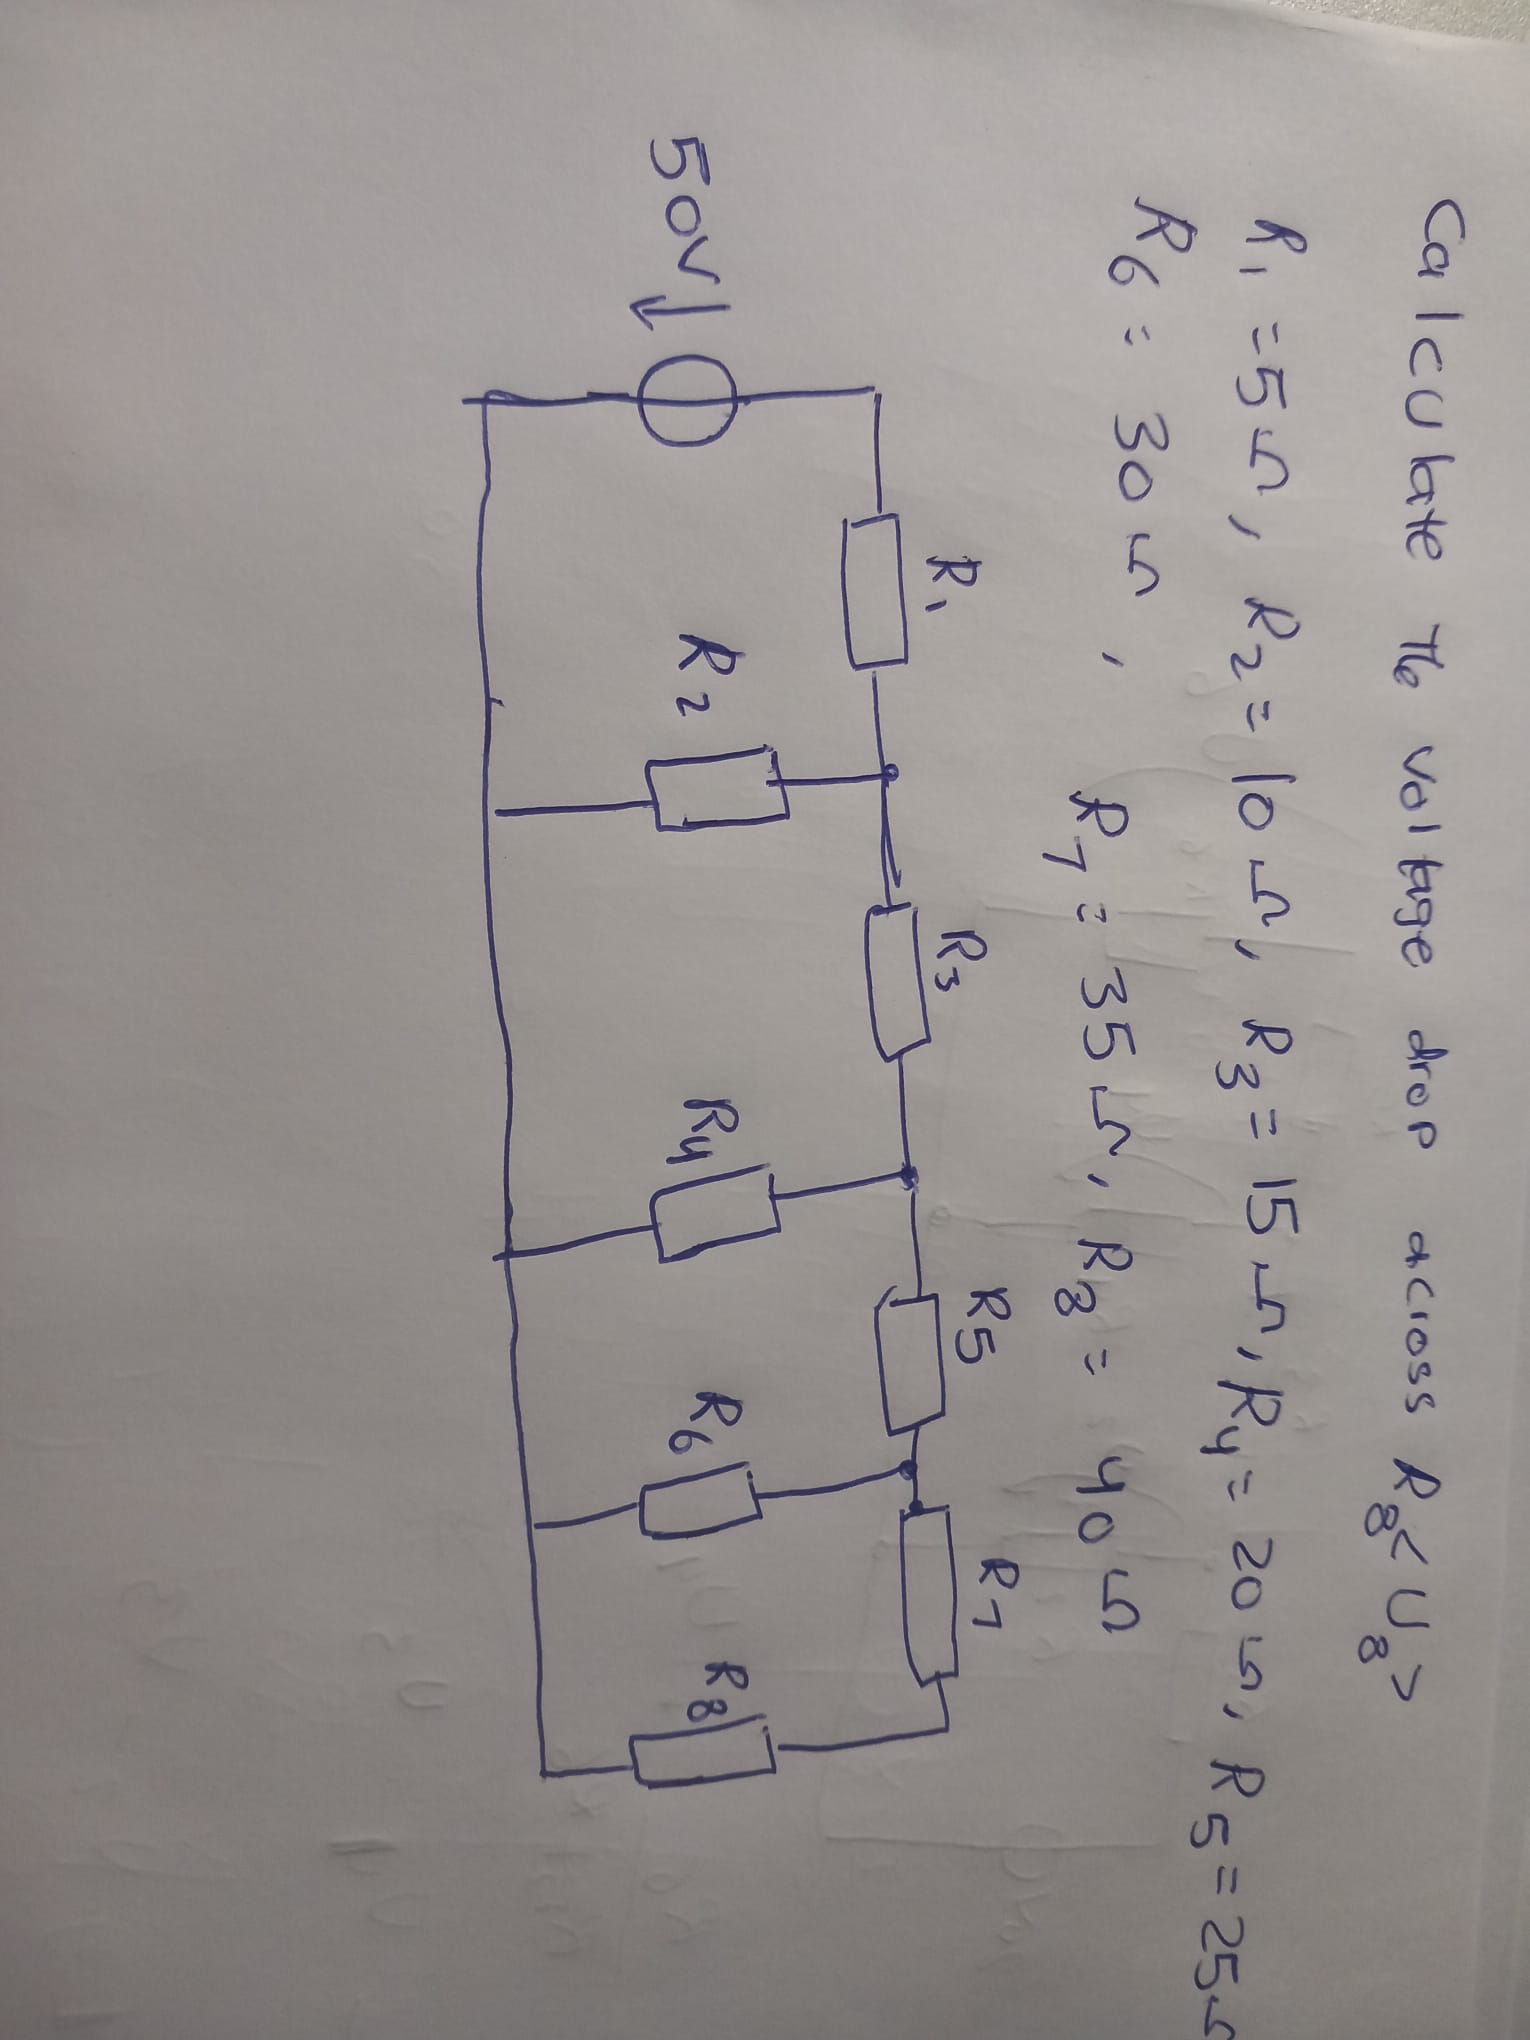 Calculate The voltage drop across R8<U8>
R1=5Ω, R2=10Ω, R3=15Ω, R4=20Ω, R5=25Ω
R6=30Ω, R7=35Ω, R8=40Ω
R1
R3
R5
R7
50V↓
R2
R4
R6
R8